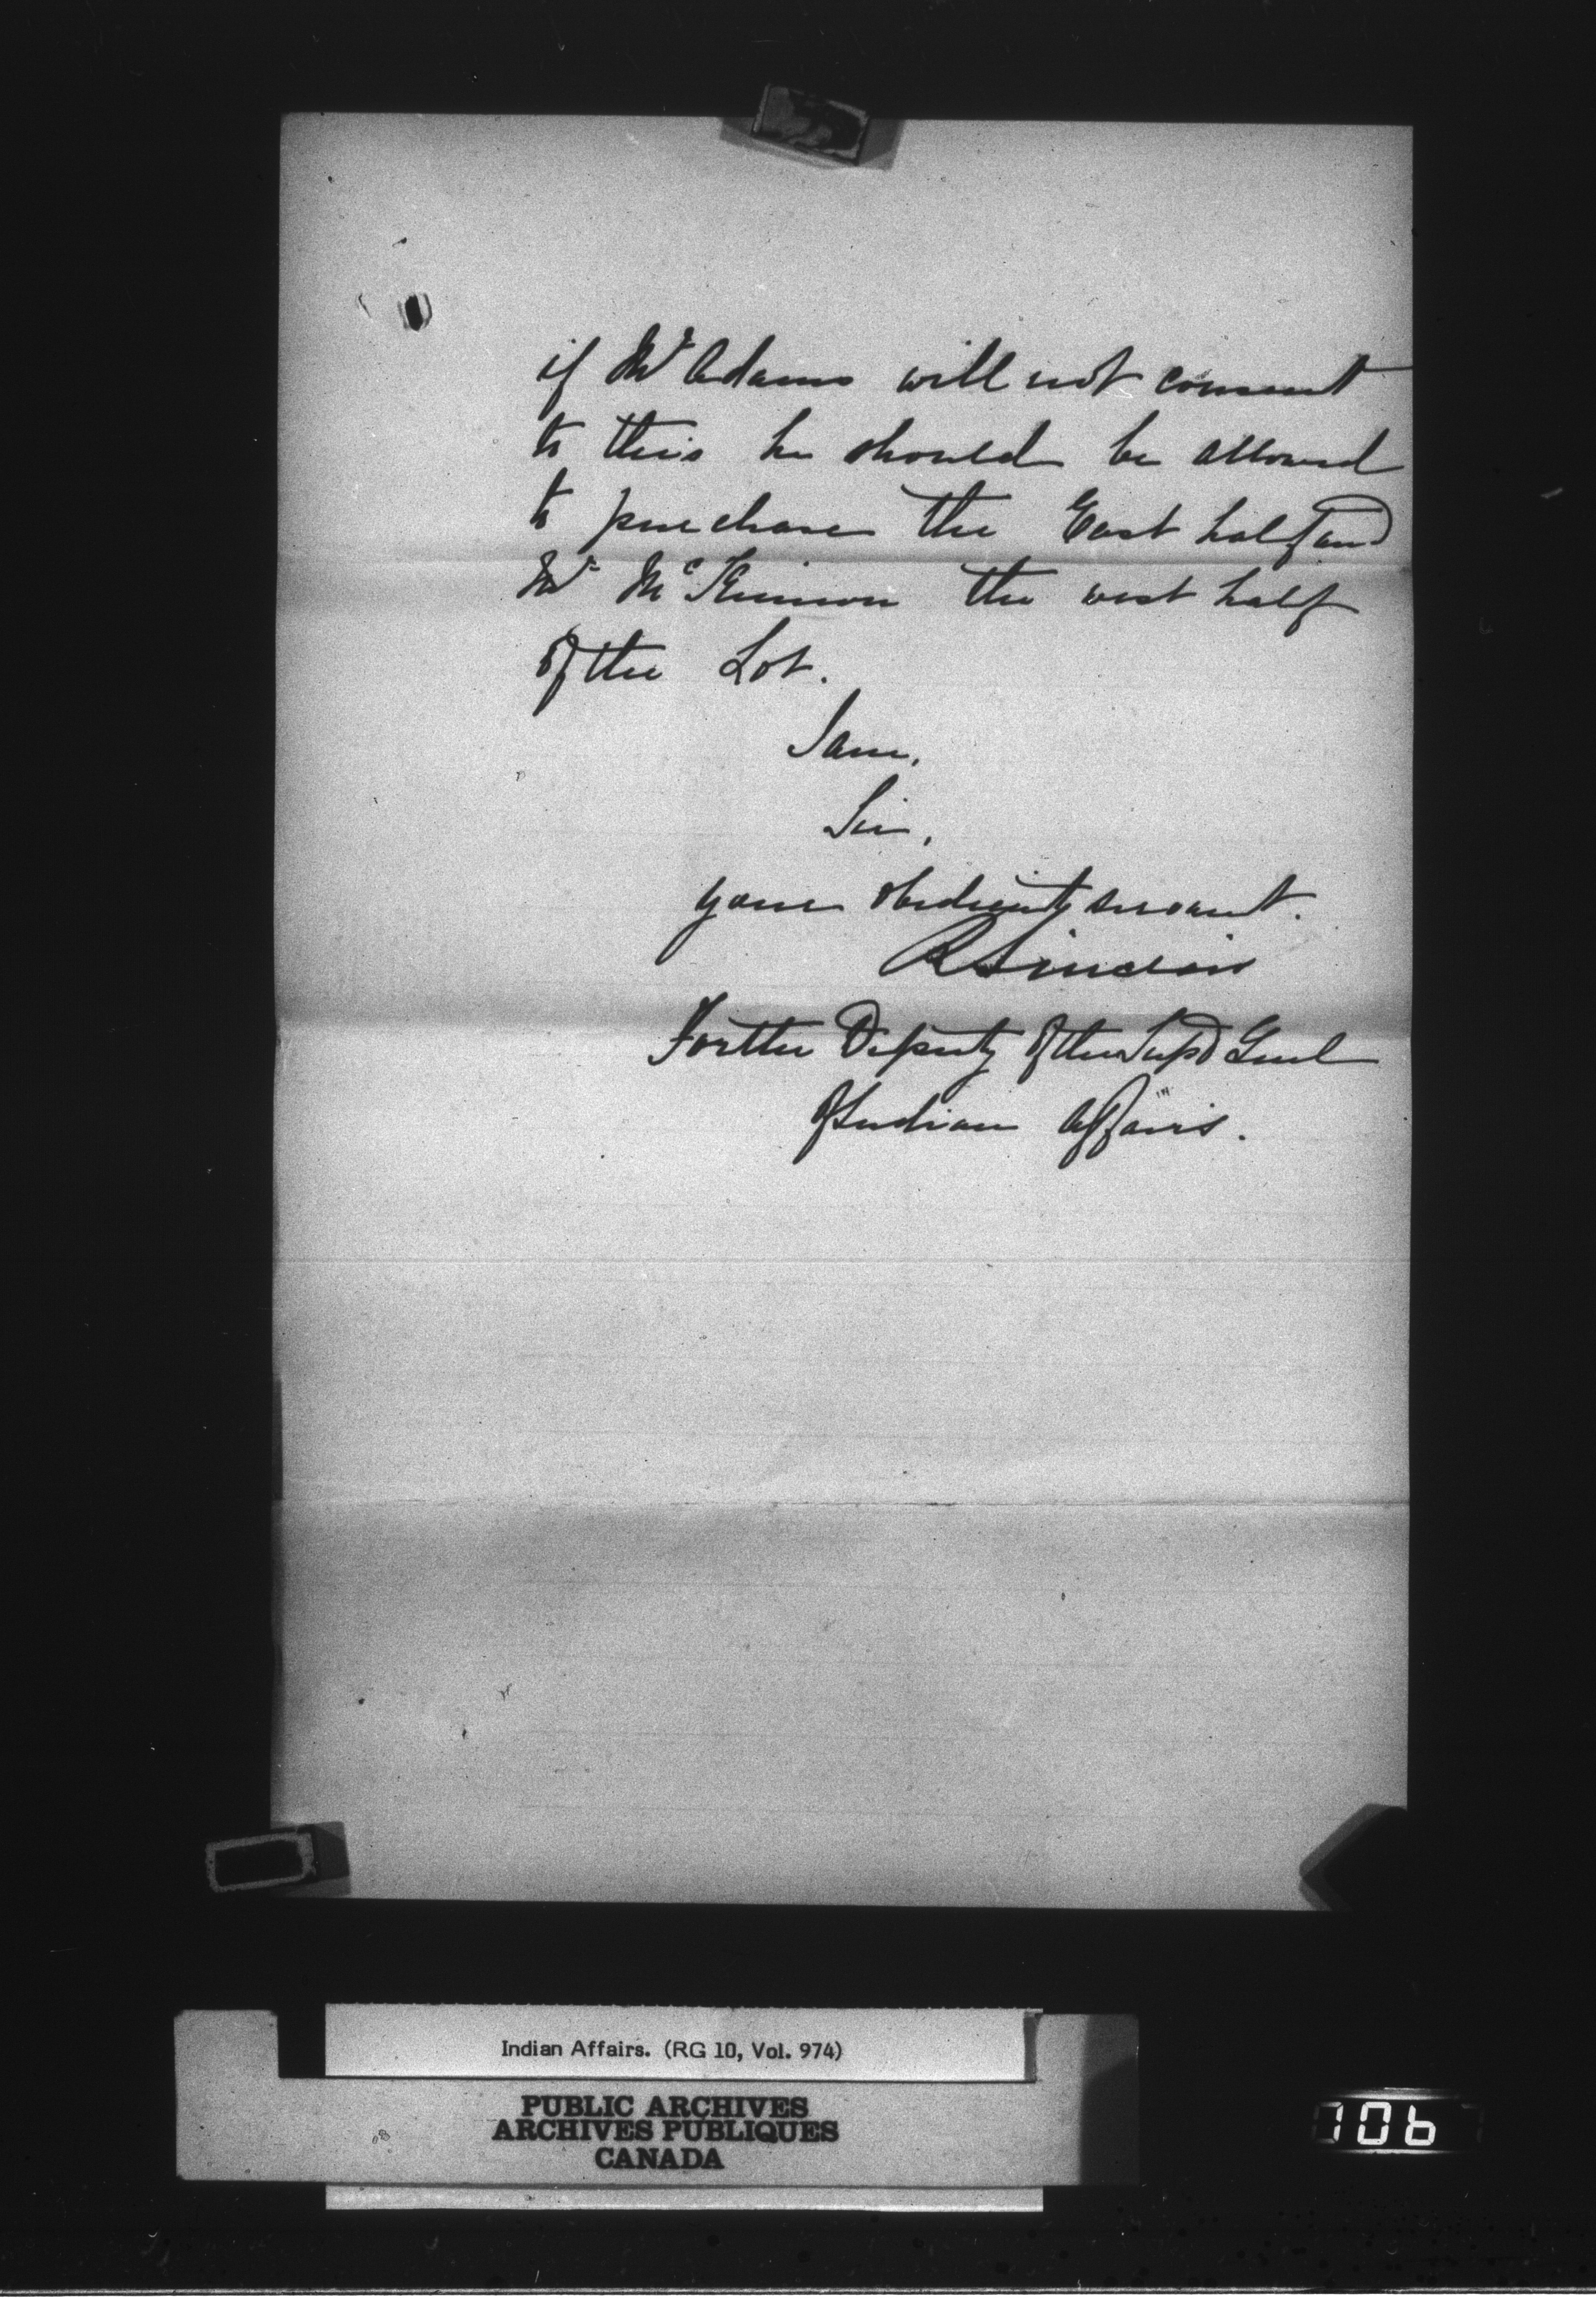 if Mr Adams will not consent
to this he should be allowed
to purchase the East half and
Mr McKinnon the west half
of the Lot.
I am,
Sir,
your obedient servant.
R Sinclair
For the Deputy of the Supt Genl
of Indian Affairs.
Indian Affairs. (RG 10, Vol. 974)
PUBLIC ARCHIVES
ARCHIVES PUBLIQUES
CANADA
106